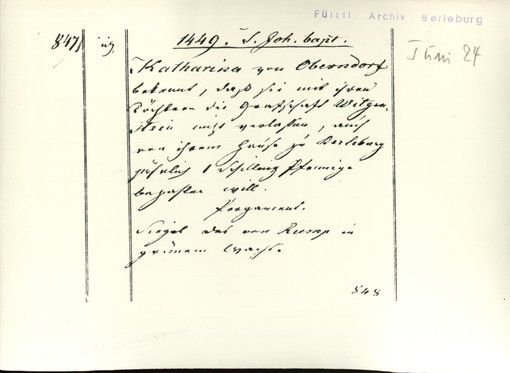 Fürstl. Archiv Berleburg
Juni 24
847, 1449. S. Joh. bapt.
Katharina von Oberndorf
bekennt, daß sie mit ihren
Töchtern die Grafschaft Witgen-
stein nicht verlassen, auch
von ihrem Hause zu Berleburg
jährlich 1 Schilling Pfennige
bezahlen will.
Pergament.
Siegel des von Rump in
grünem Wachs.
848